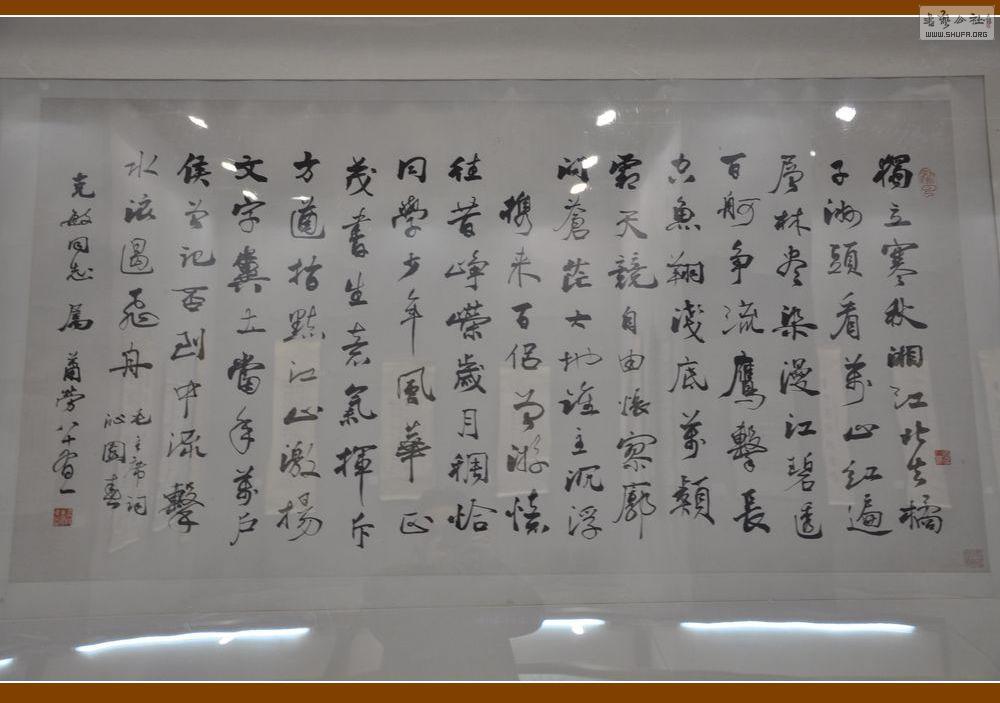 獨立寒秋湘江北去橘
子洲頭看萬山紅遍
層林盡染漫江碧透
百舸争流鷹擊長
空魚翔淺底萬類
霜天競自由悵寥廓
問蒼茫大地誰主沉浮
攜来百侣曾游憶
往昔崢嶸歲月稠恰
同學少年風華正
茂書生意氣揮斥
方遒指點江山激揚
文字糞土當年萬户
侯曾記否到中流擊
水浪遏飛舟
毛主席詞
沁園春
克敏同志屬 蕭勞八十有一
書藝公社
WWW.SHUFA.ORG